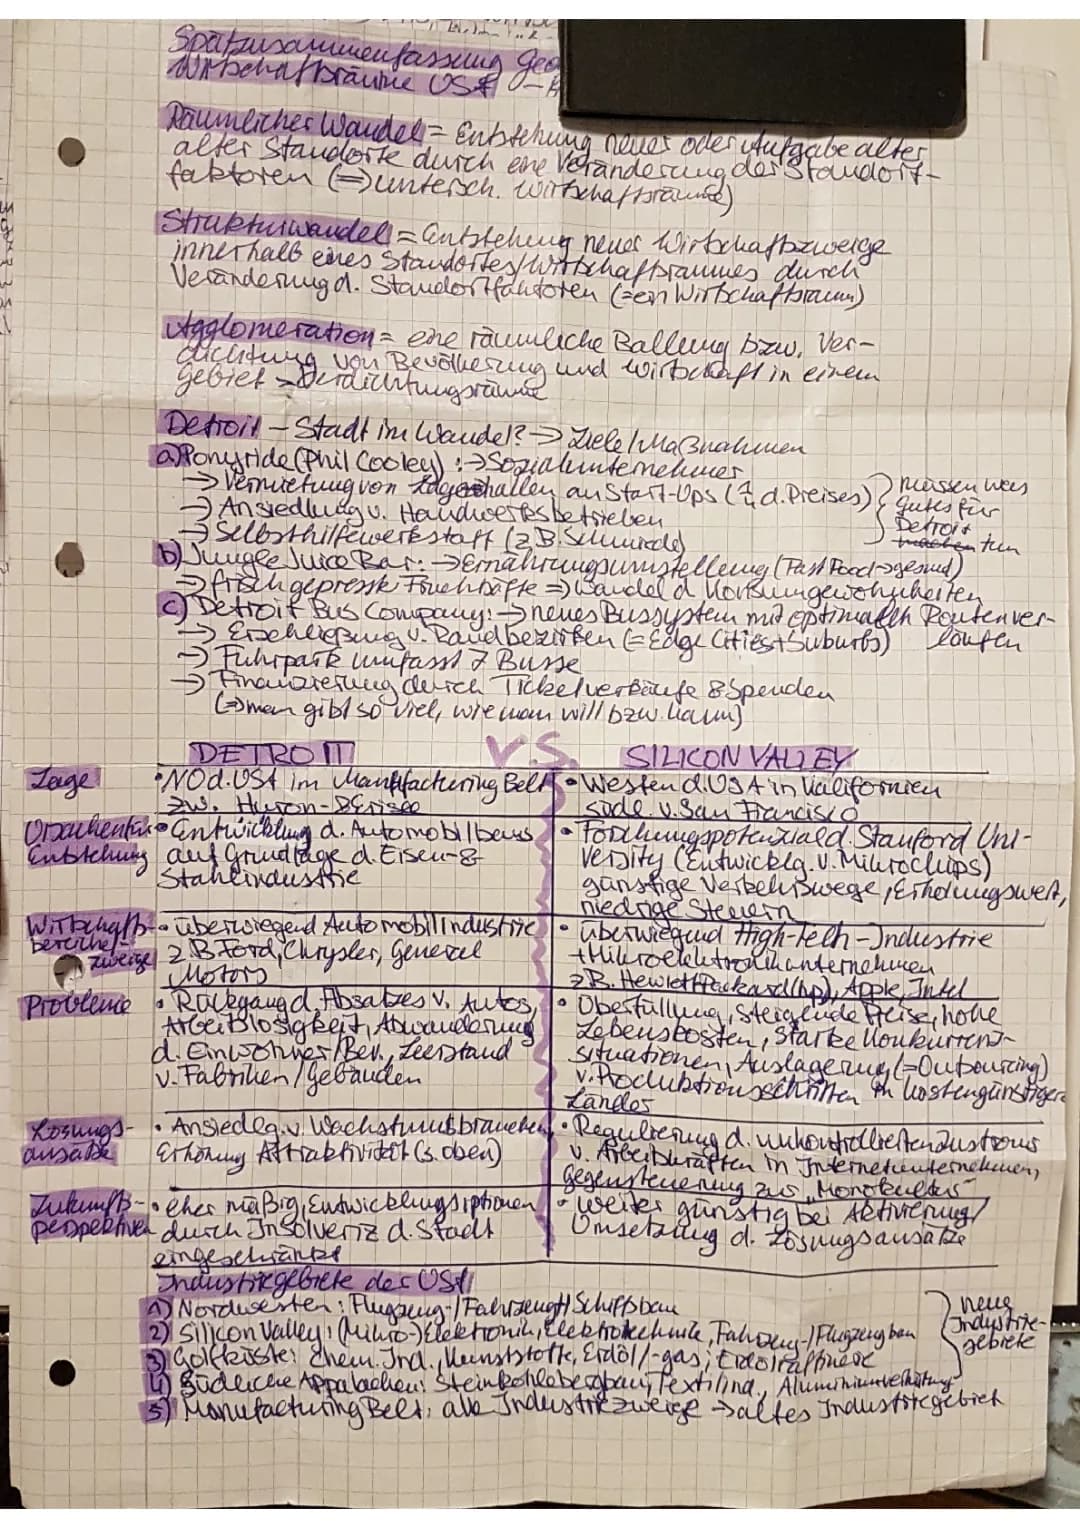 Spätzusammenfassung Geo
Wirtschaftsräume USA –
Räumlicher Wandel = Entstehung neuer oder Aufgabe alter
alter Standorte durch eine Veränderung der Standort-
faktoren (=> untersch. Wirtschaftsräume)
Strukturwandel = Entstehung neuer Wirtschaftszweige
innerhalb eines Standortes/Wirtschaftsraumes durch
Veränderung d. Standortfaktoren (= ein Wirtschaftsraum)
Agglomeration = eine räumliche Ballung bzw. Ver-
dichtung von Bevölkerung und Wirtschaft in einem
Gebiet -> Verdichtungsräume
Detroit – Stadt im Wandel? -> Ziele/Maßnahmen
a) Ponyride (Phil Cooley): -> Sozialunternehmer
-> Vermietung von Lagerhallen an Start-Ups (1/4 d. Preises) } müssen was
-> Ansiedlung v. Handwerksbetrieben } Gutes für
-> Selbsthilfewerkstatt (z.B. Schmiede) } Detroit
machen tun
b) Jungle Juice Bar: -> Ernährungsumstellung (Fast Food -> gesund)
-> frisch gepresste Fruchtsäfte => Wandel d. Konsumgewohnheiten
c) Detroit Bus Company: -> neues Bussystem mit optimalen Routenver-
läufen
-> Erschließung v. Randbezirken (= Edge Cities + Suburbs)
-> Fuhrpark umfasst 7 Busse
-> Finanzierung durch Ticketverkäufe & Spenden
(=> man gibt so viel, wie man will bzw. kann)
DETROIT VS. SILICON VALLEY
Lage
• NO d. USA im Manufacturing Belt
zw. Huron- & Eriesee
• Westen d. USA in Kalifornien
südl. v. San Francisco
Ursachen für
Entstehung
• Entwicklung d. Automobilbaus
auf Grundlage d. Eisen- &
Stahlindustrie
• Forschungspotenzial d. Stanford Uni-
versity (Entwicklg. v. Mikrochips)
günstige Verkehrswege, Erholungswert,
niedrige Steuern
Wirtschafts-
bereiche/-
zweige
• überwiegend Automobilindustrie
z.B. Ford, Chrysler, General
Motors
• überwiegend High-Tech-Industrie
+ Mikroelektronikunternehmen
z.B. Hewlett Packard (hp), Apple, Intel
Probleme
• Rückgang d. Absatzes v. Autos,
Arbeitslosigkeit, Abwanderung
d. Einwohner/Bev., Leerstand
v. Fabriken/Gebäuden
• Überfüllung, steigende Preise, hohe
Lebenskosten, starke Konkurrenz-
situationen, Auslagerung (= Outsourcing)
v. Produktionsschritten in kostengünstigere
Länder
Lösungs-
ansätze
• Ansiedlg. v. Wachstumsbranchen,
Erhöhung Attraktivität (s. oben)
• Regulierung d. unkontrollierten Zustroms
v. Arbeitskräften in Internetunternehmen,
Gegensteuerung zur „Monokultur“
Zukunfts-
perspektiven
• eher mäßig, Entwicklungsoptionen
durch Insolvenz d. Stadt
eingeschränkt
• weiter günstig bei Aktivierung/
Umsetzung d. Lösungsansätze
Industriegebiete der USA
1) Nordwesten: Flugzeug-/Fahrzeug-/Schiffsbau
2) Silicon Valley: (Mikro-)Elektronik, Elektrotechnik, Fahrzeug-/Flugzeugbau
3) Golfküste: Chem. Ind., Kunststoffe, Erdöl/-gas, Erdölraffinerie
4) Südliche Appalachen: Steinkohlebergbau, Textilind., Aluminiumverhüttung
} neue
Industrie-
gebiete
5) Manufacturing Belt: alle Industriezweige -> altes Industriegebiet